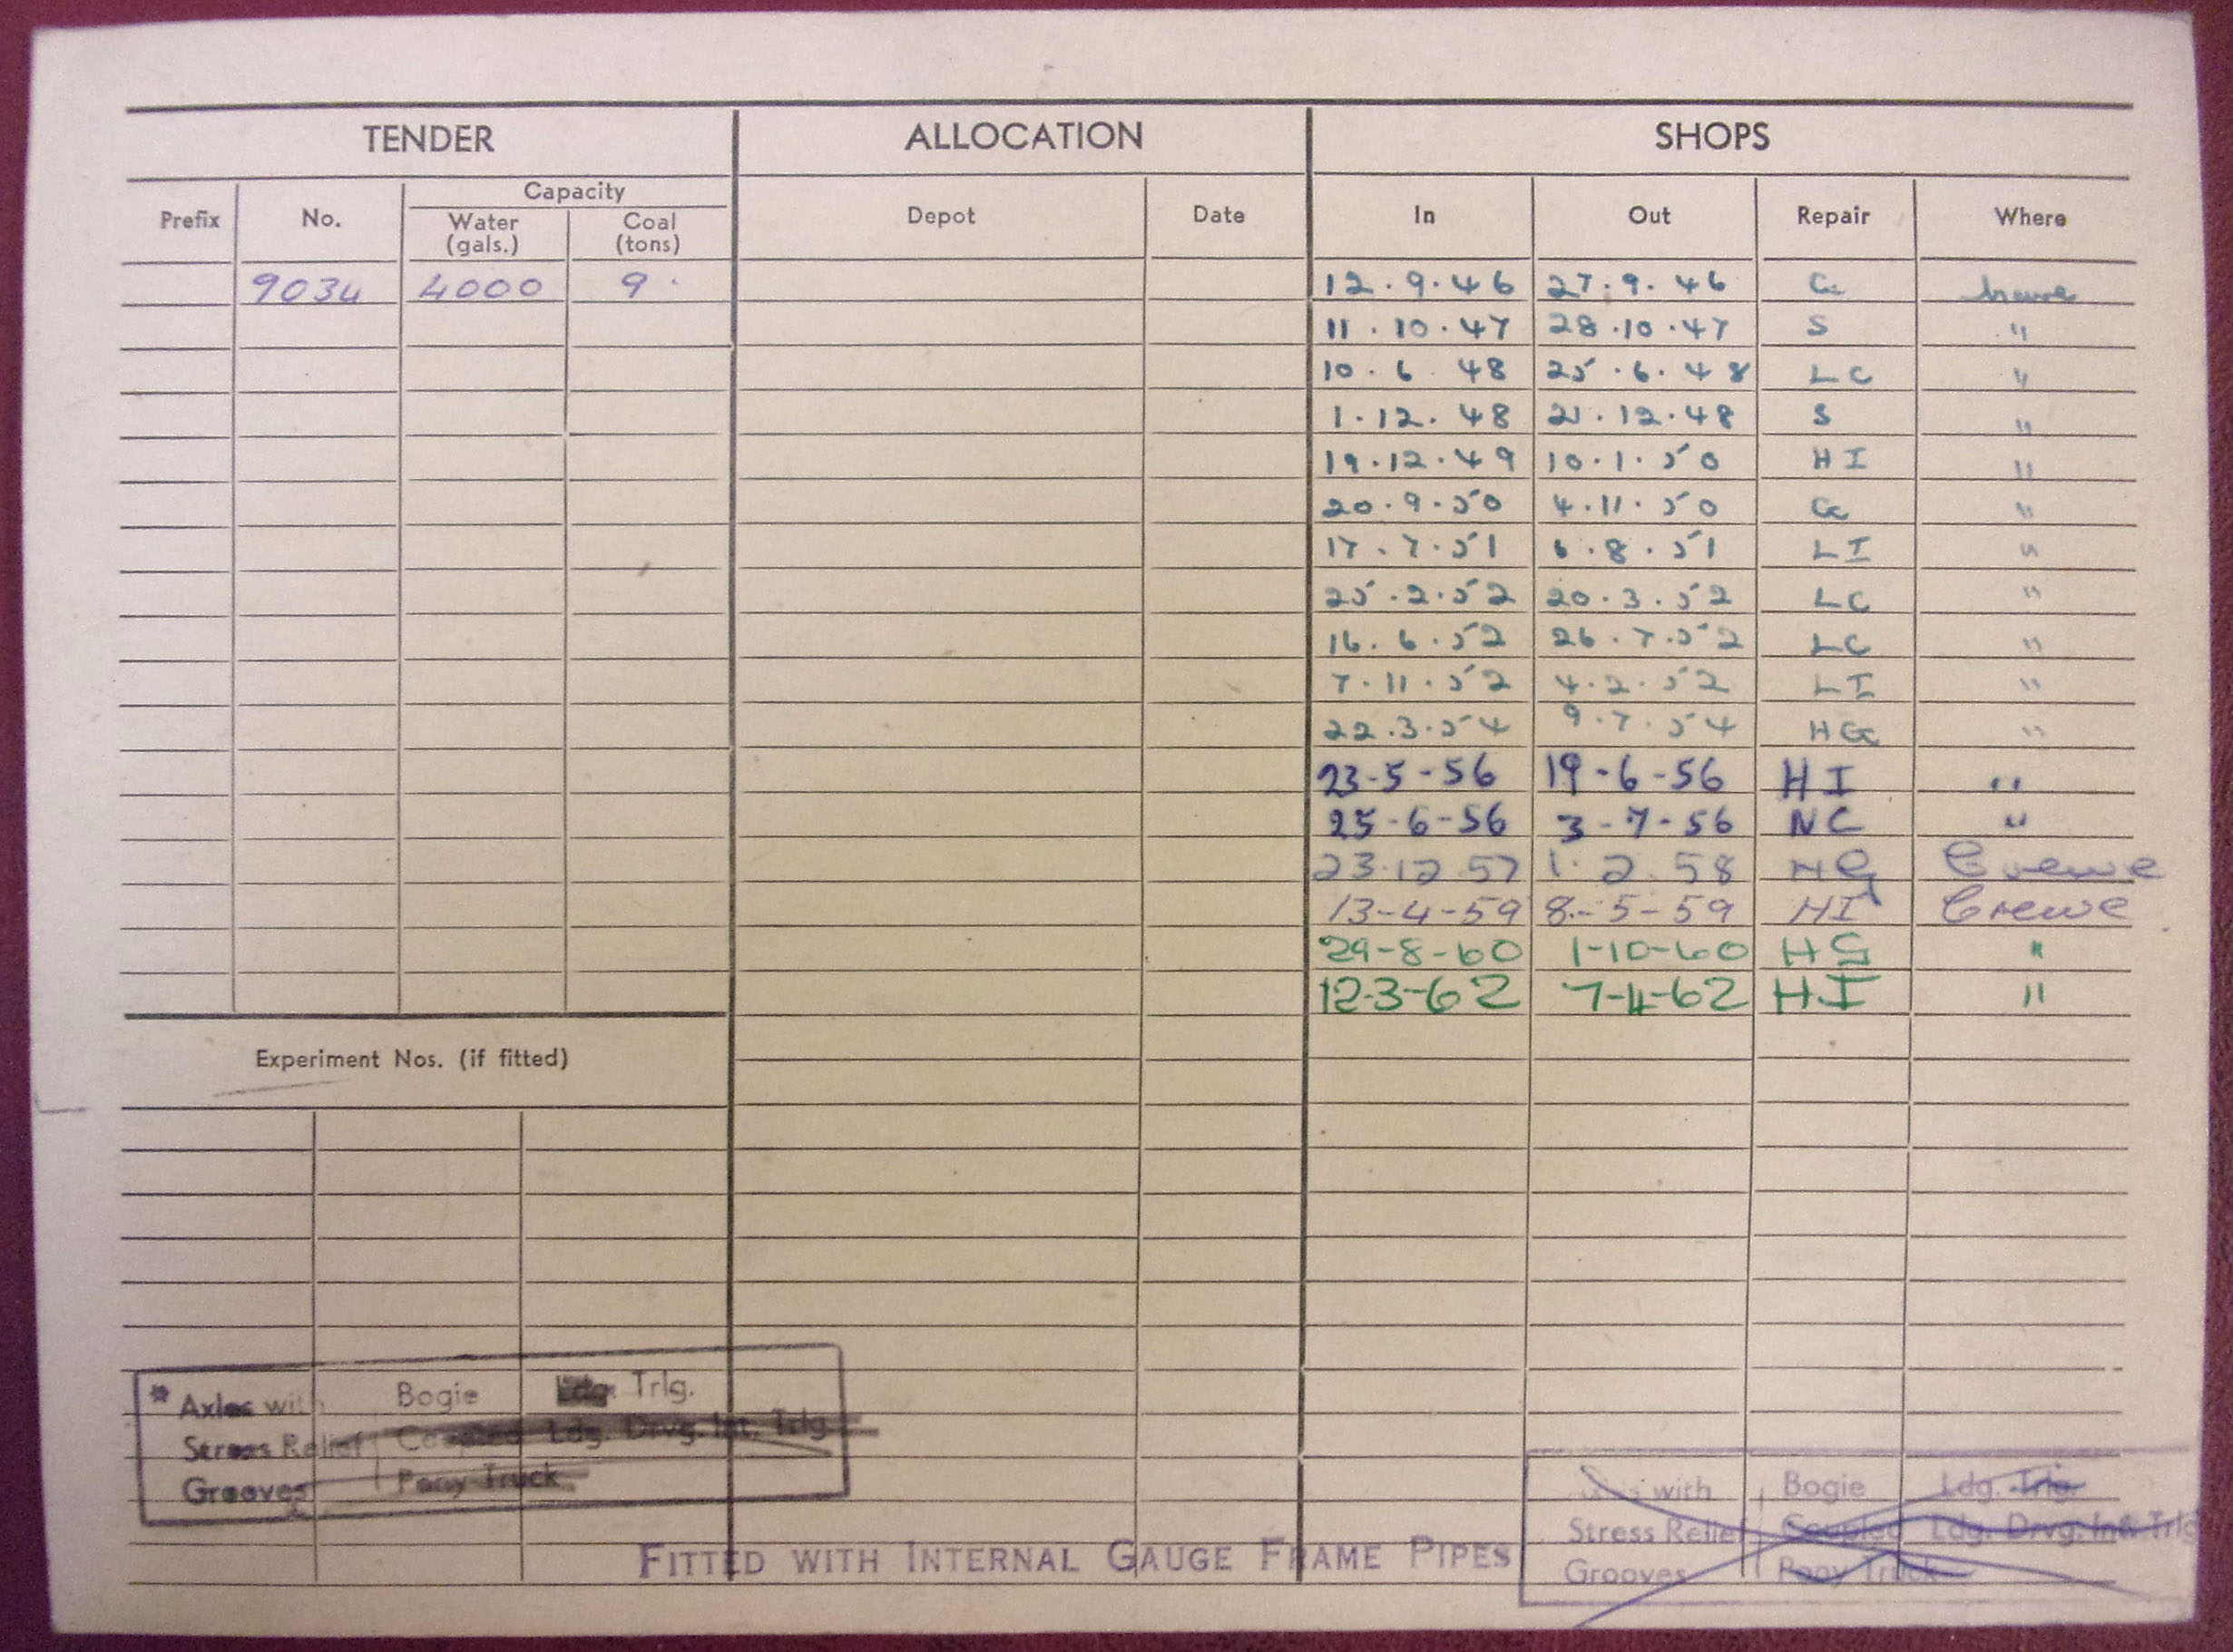 TENDER ALLOCATION SHOPS
Capacity
Prefix No. Water (gals.) Coal (tons) Depot Date In Out Repair Where
9034 4000 9 12.9.46 27.9.46 G
11.10.47 28.10.47 S "
10.6 48 25.6.48 LC "
1.12.48 21.12.48 S "
19.12.49 10.1.50 HI "
20.9.50 4.11.50 G "
17.7.51 6.8.51 LI "
25.2.52 20.3.52 LC "
16.6.52 26.7.52 LC "
7.11.52 4.2.52 LI "
22.3.54 9.7.54 HG "
23-5-56 19-6-56 HI "
25-6-56 3-7-56 NC "
23.12 57 1.2.58 HG Crewe
13-4-59 8-5-59 HI Crewe
29-8-60 1-10-60 HG "
12-3-62 7-4-62 HI "
Experiment Nos. (if fitted)
* Axles with Bogie Ldg. Trlg.
Stress Relief Coupled Ldg. Drvg. Int. Trlg
Grooves Pony Truck
with Bogie Ldg. Trlg.
Stress Relief Coupled Ldg. Drvg. Int. Trlg
Grooves Pony Truck
FITTED WITH INTERNAL GAUGE FRAME PIPES